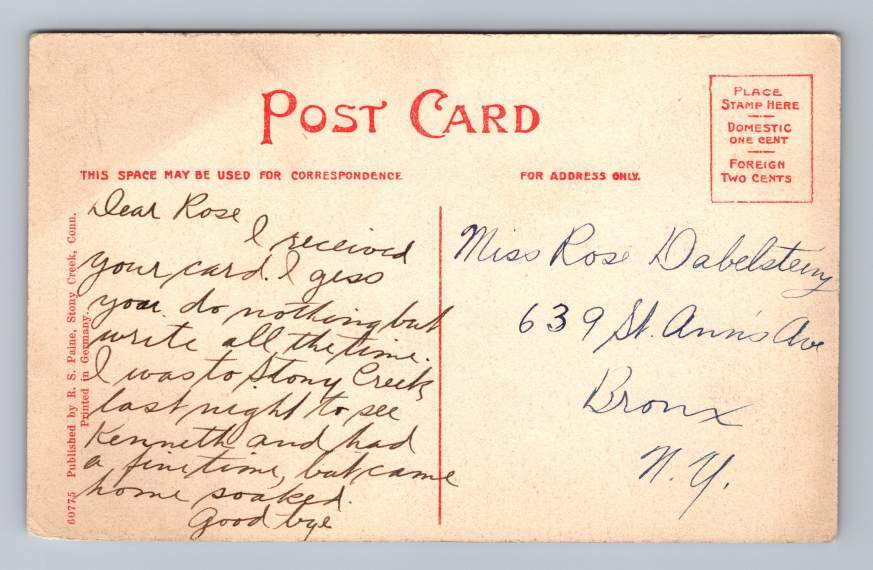 POST CARD
PLACE
STAMP HERE
DOMESTIC
ONE CENT
FOREIGN
TWO CENTS
THIS SPACE MAY BE USED FOR CORRESPONDENCE
FOR ADDRESS ONLY.
60775 Published by R. S. Paine, Stony Creek, Conn.
Printed in Germany.
Dear Rose
I received
your card. I gess
you do nothing but
write all the time.
I was to Stony Creek
last night to see
Kenneth and had
a fine time, but came
home soaked.
Good bye
Miss Rose
639 St. Ann's Ave
Bronx
N.Y.